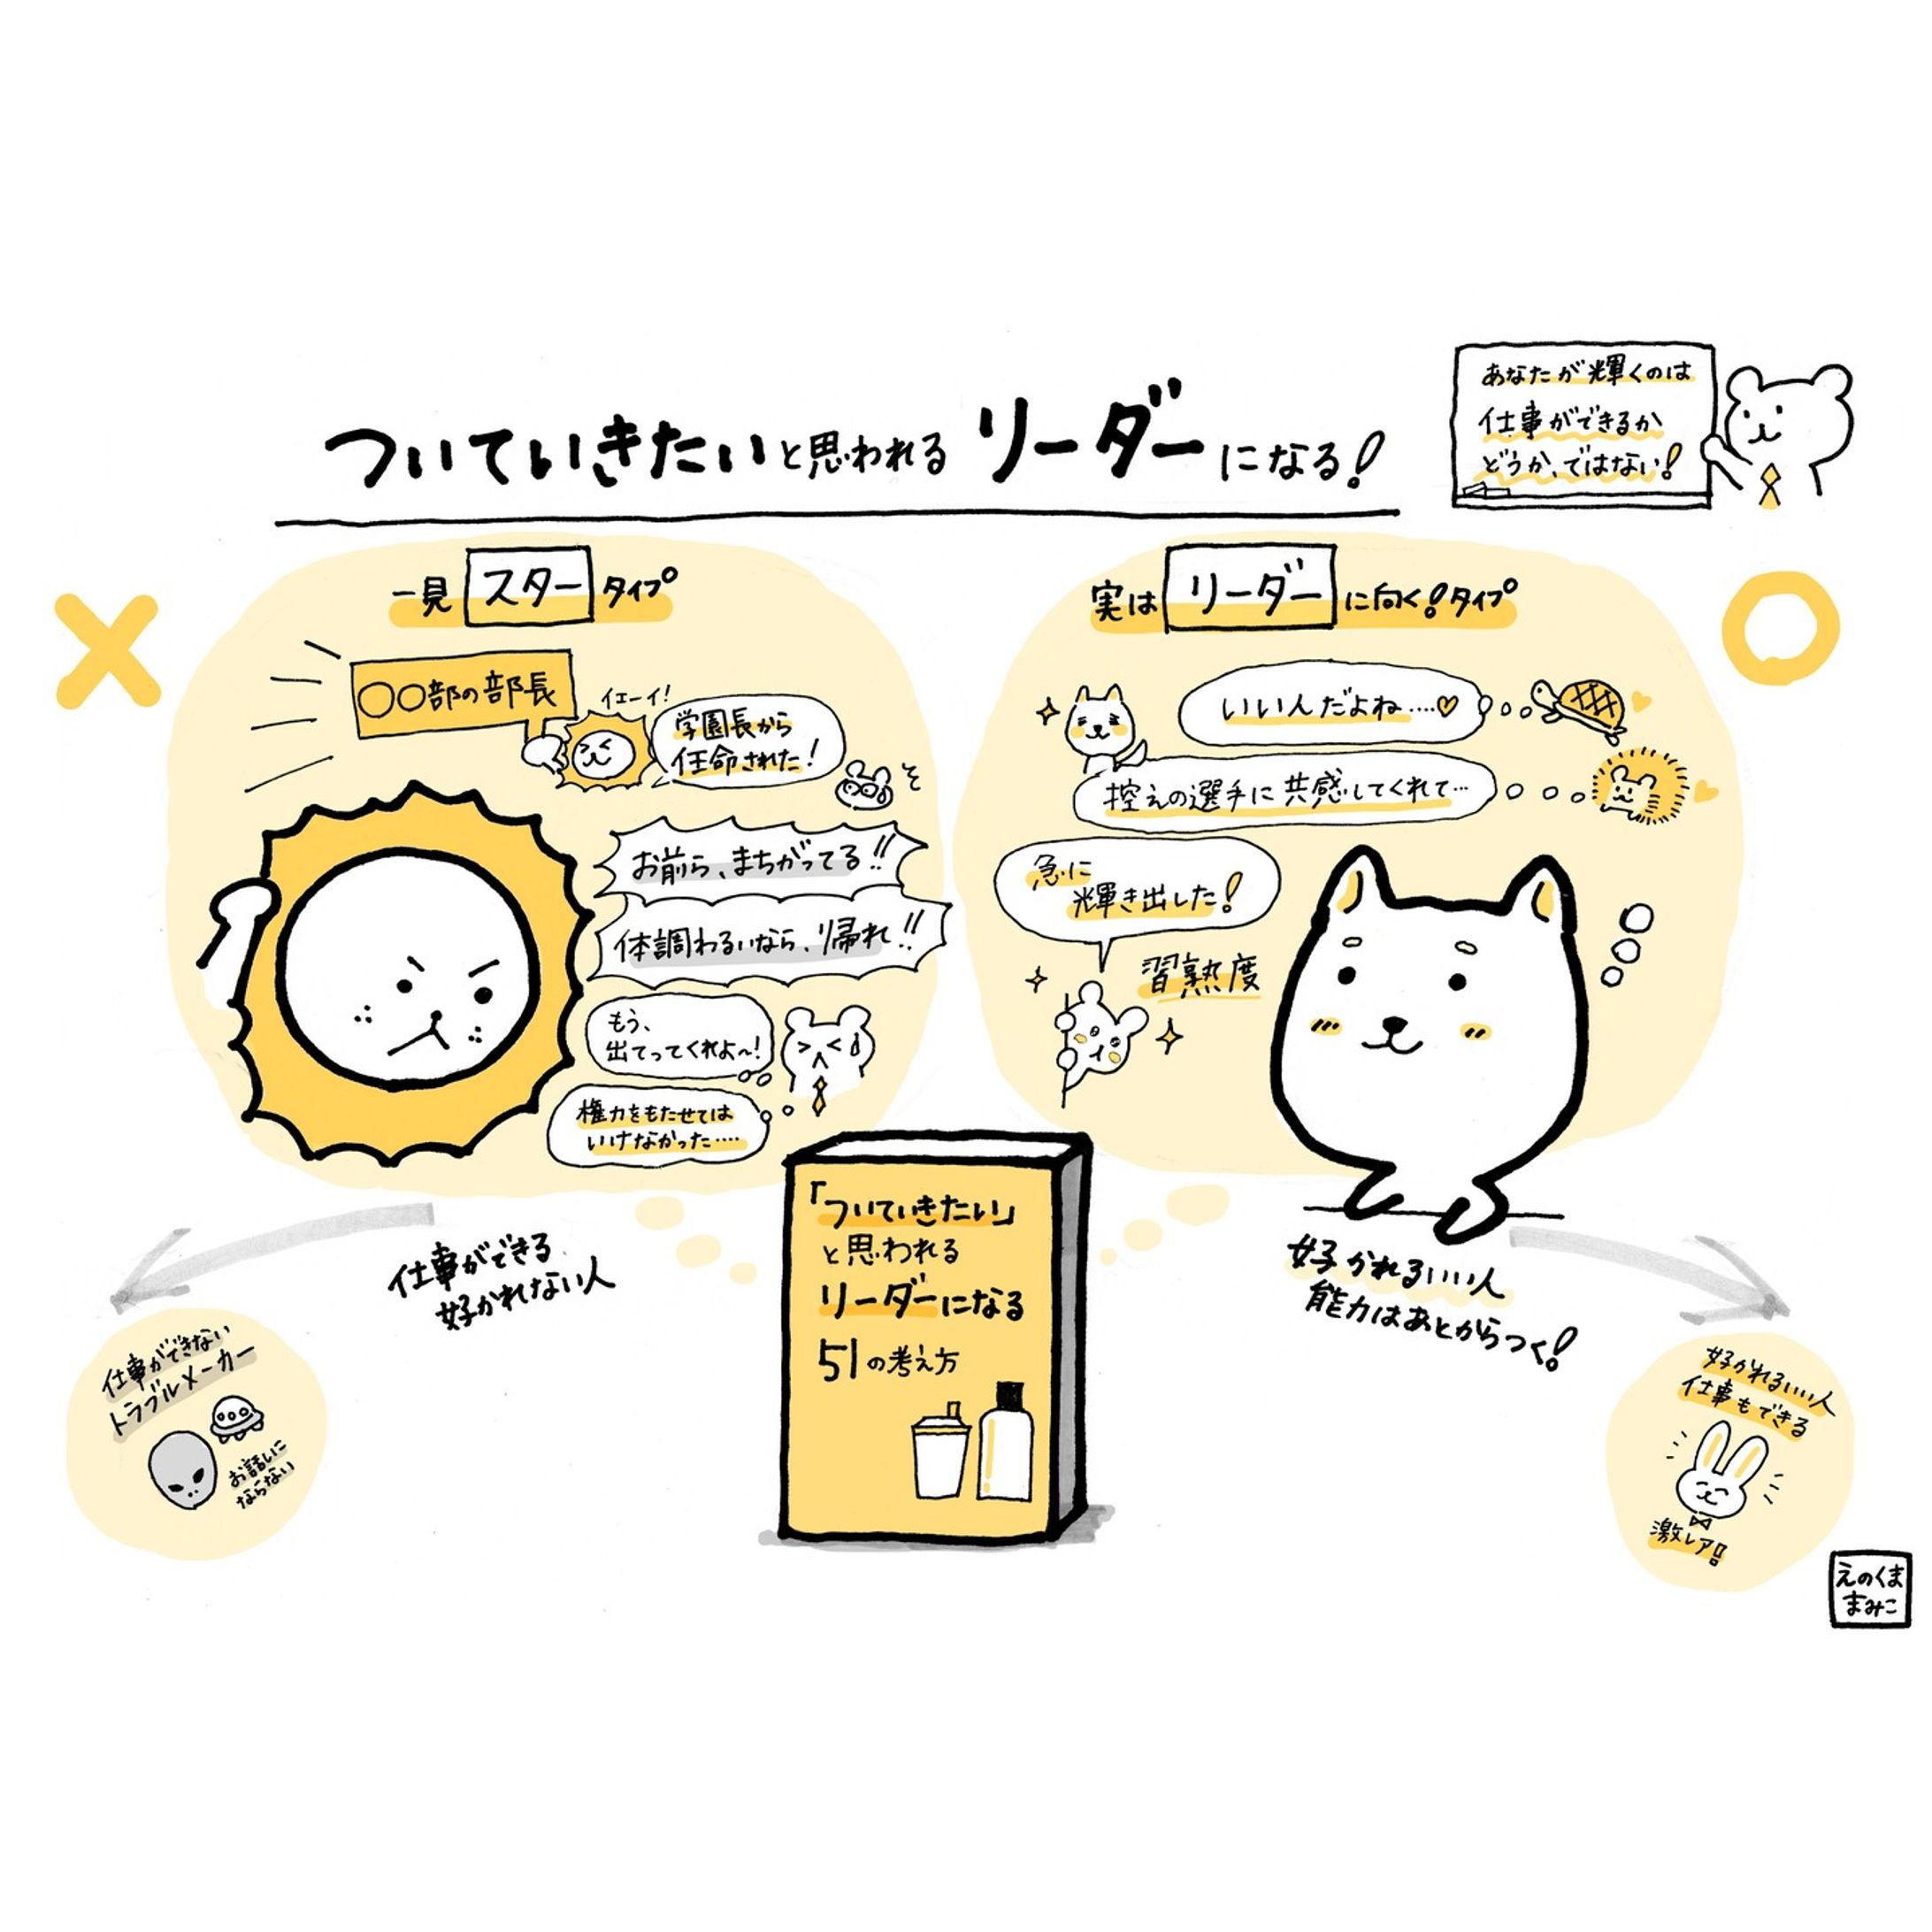 ついていきたいと思われるリーダーになる!
あなたが輝くのは
仕事ができるか
どうか、ではない!
一見スタータイプ
〇〇部の部長
イエーイ!
学園長から
任命された!
お前ら、まちがってる!!
体調わるいなら、帰れ!!
もう、
出てってくれよ〜!
権力をもたせては
いけなかった‥‥
仕事ができる
好かれない人
仕事ができない
トラブルメーカー
お話しに
ならない
実はリーダーに向く!タイプ
いいんだよね‥‥
控えの選手に共感してくれて‥
急に
輝き出した!
習熟度
好かれるいい人
能力はあとからつく!
好かれるいい人
仕事もできる
激レア!
「ついていきたい」
と思われる
リーダーになる
51の考え方
えのくま
まみこ